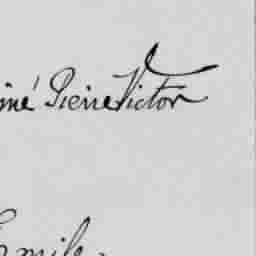 imé Pierre Victor
Emile